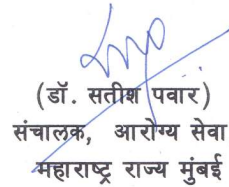 (डॉ. सतीश पवार)
संचालक, आरोग्य सेवा
महाराष्ट्र राज्य मुंबई